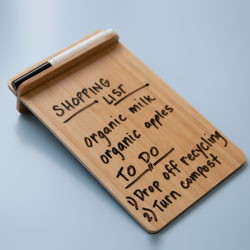 SHOPPING
LIST
organic milk
organic apples
TO DO
1) Drop off recycling
2) Turn compost